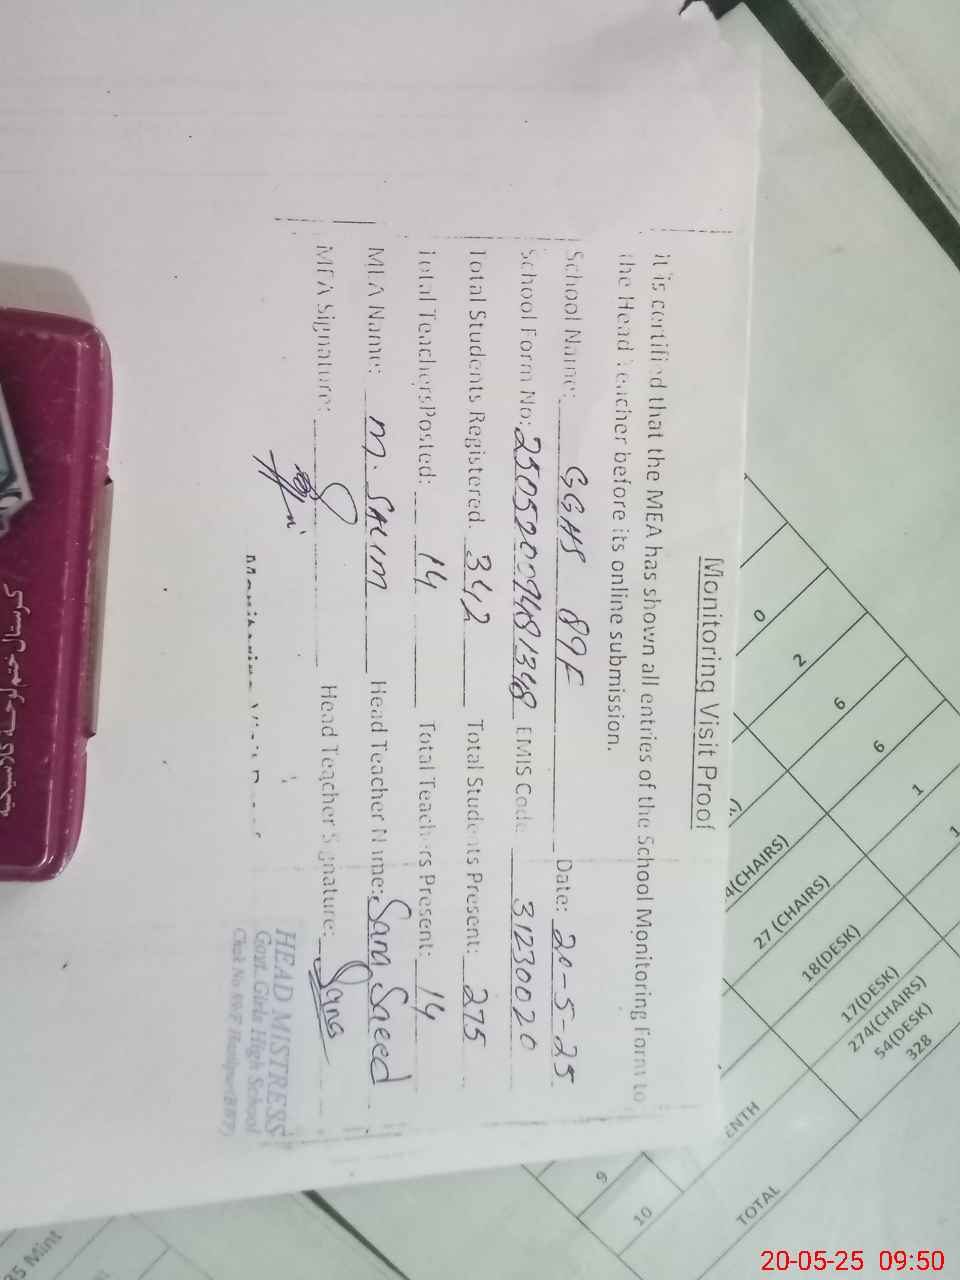 Monitoring Visit Proof
it is certified that the MEA has shown all entries of the School Monitoring Form to
the Head Teacher before its online submission.
School Name: GGHS 89F Date: 20-5-25
School Form No: EMIS Code 31230020
Total Students Registered. 342 Total Students Present: 275
Total Teachers Posted: 14 Total Teachers Present: 14
MEA Name: M. SALIM Head Teacher Name: Sara Saeed
MEA Signature: Head Teacher Signature: Sara
HEAD MISTRESS
Govt. Girls High School
Chak No.
0
2
6
6
1
1
4(CHAIRS)
27 (CHAIRS)
18(DESK)
17(DESK)
274(CHAIRS)
54(DESK)
328
9
10
ENTH
TOTAL
35 Mint
كرستال
20-05-25 09:50